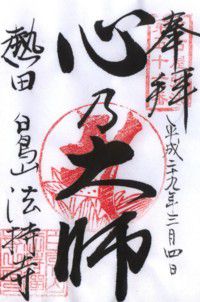 奉拝
平成二十九年三月四日
心乃大師
熱田 白鳥山 法持寺